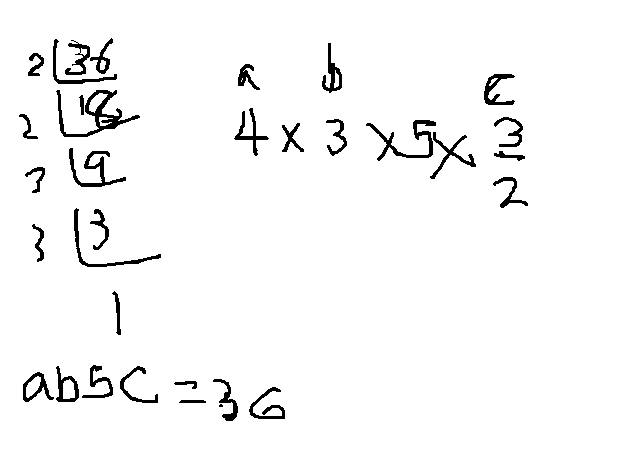 2 36
2 18
3 9
3 3
1
a b c
4 × 3 × 5 × 3/2
ab5c = 36